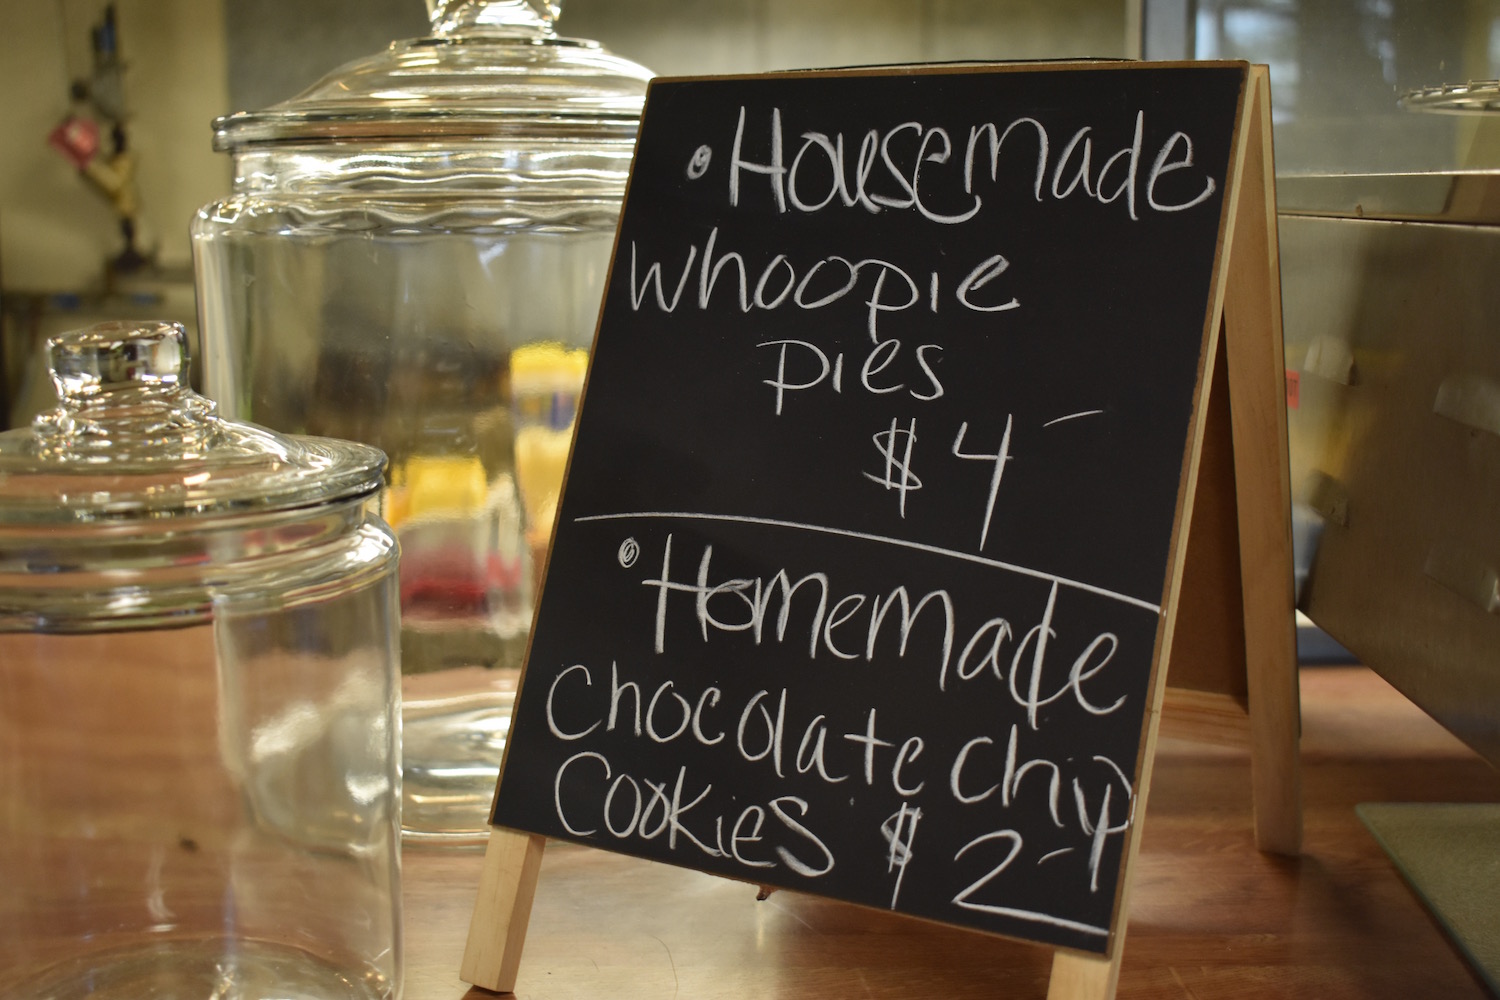 • Housemade
whoopie
pies
$4-
• Homemade
chocolate chip
cookies $2-